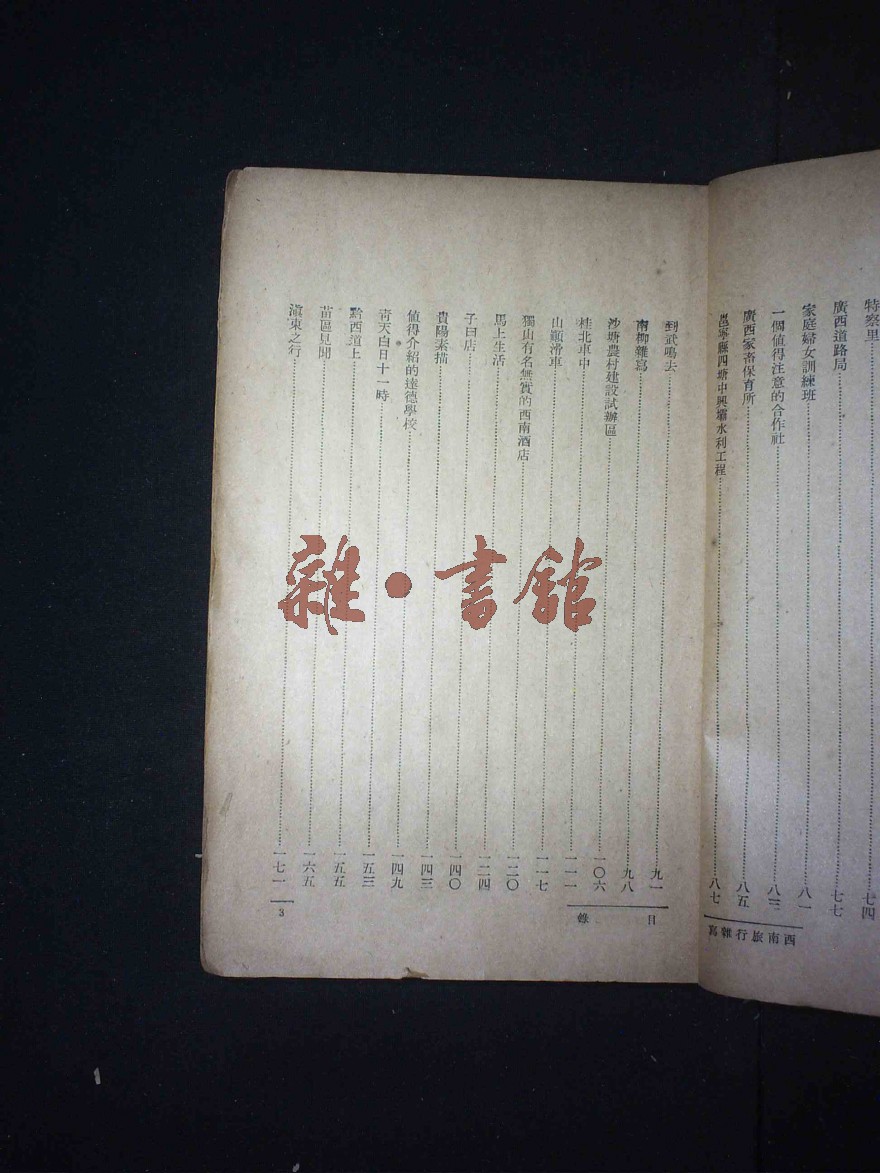 特察里……七四
廣西道路局……七七
家庭婦女訓練班……八一
一個値得注意的合作社……八三
廣西家畜保育所……八五
邕寧縣四塘中興壩水利工程……八七
西南旅行雜寫
到武鳴去……九一
南柳雜寫……九八
沙塘農村建設試辦區……一〇六
桂北車中……一一一
山顚滑車……一一七
獨山有名無實的西南酒店……一二〇
馬上生活……一二四
子曰店……一四〇
貴陽素描……一四三
値得介紹的達德學校……一四九
靑天白日十一時……一五三
黔西道上……一五五
苗區見聞……一六五
滇東之行……一七一
目錄
3
雜·書館